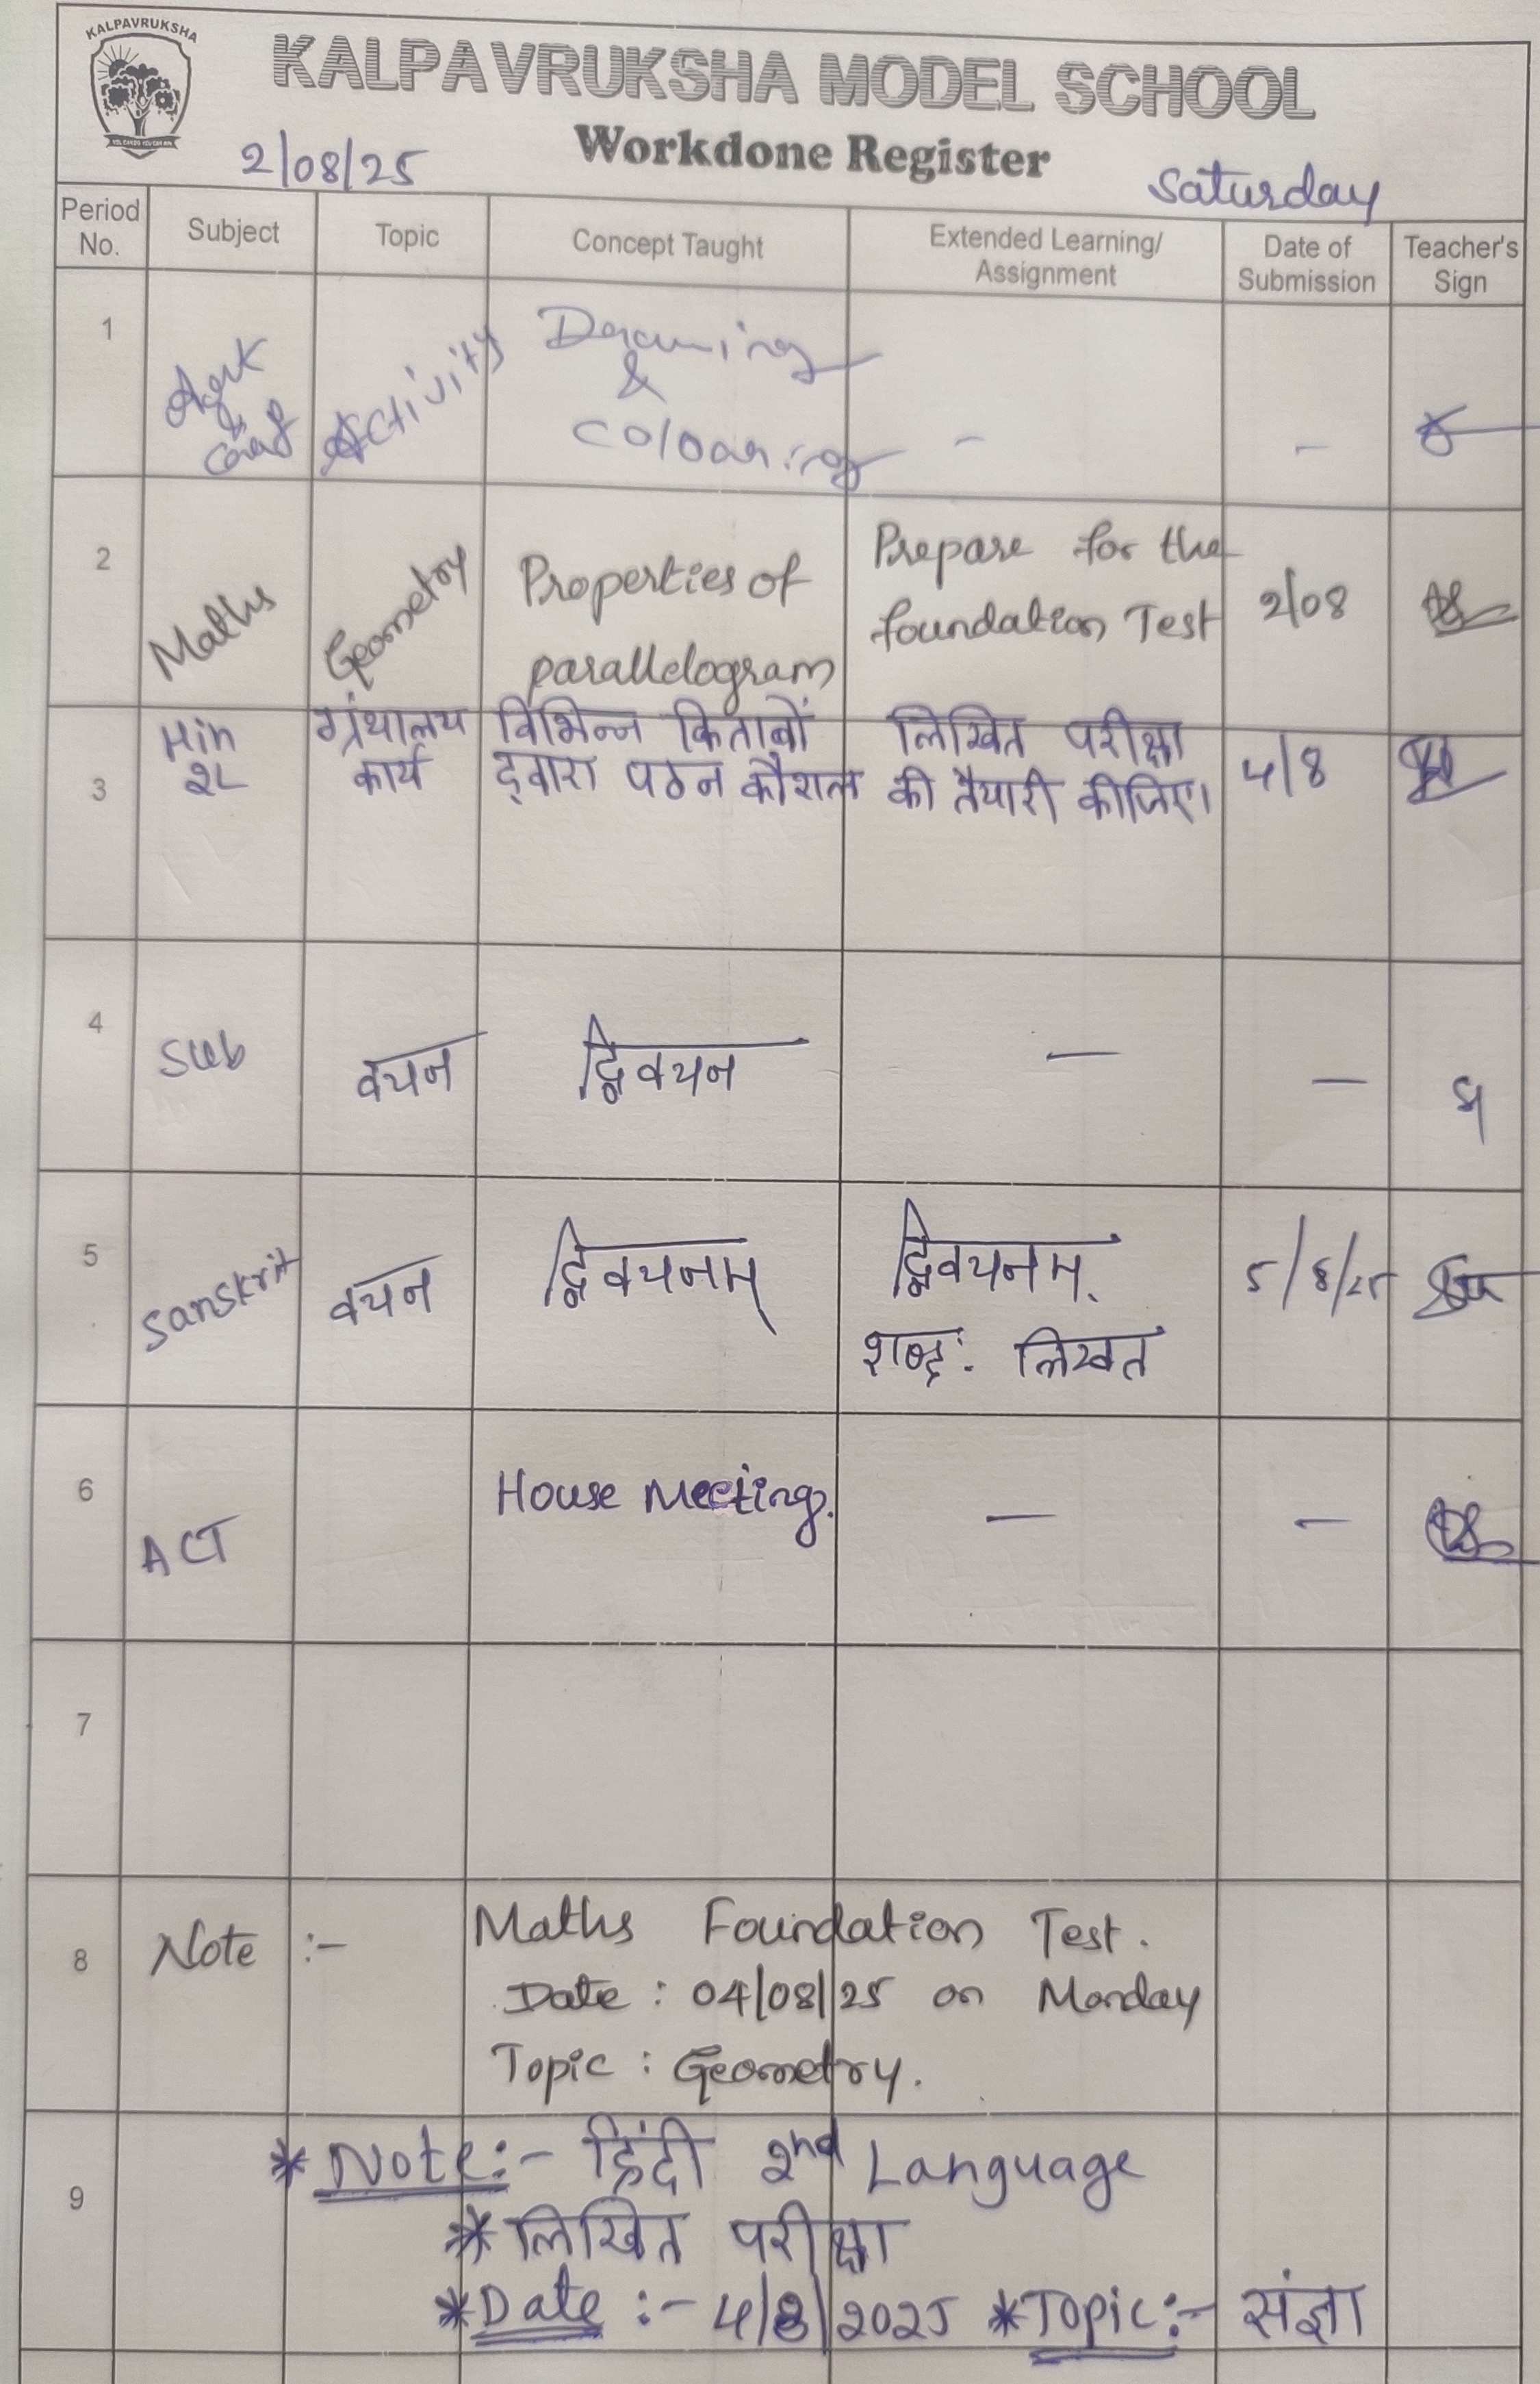 KALPAVRUKSHA
KALPAVRUKSHA MODEL SCHOOL
Workdone Register
2/08/25
Saturday
Period No. Subject Topic Concept Taught Extended Learning/ Assignment Date of Submission Teacher's Sign
1 Activity Drawing
&
Colouring - -
2 Maths Geometry Properties of parallelogram Prepare for the foundation Test 2/08
3 Hin 2L ग्रंथालय कार्य विभिन्न किताबों द्वारा पठन कौशल लिखित परीक्षा की तैयारी कीजिए। 4/8
4 Sub वचन द्विवचन — —
5 Sanskrit वचन द्विवचनम् द्विवचनम्
शब्द: लिखत 5/8/25
6 ACT House Meeting. — —
7
8 Note :- Maths Foundation Test.
Date : 04/08/25 on Monday
Topic : Geometry.
9 * Note:- हिंदी 2nd Language
* लिखित परीक्षा
* Date :- 4/8/2025 * Topic:- संज्ञा